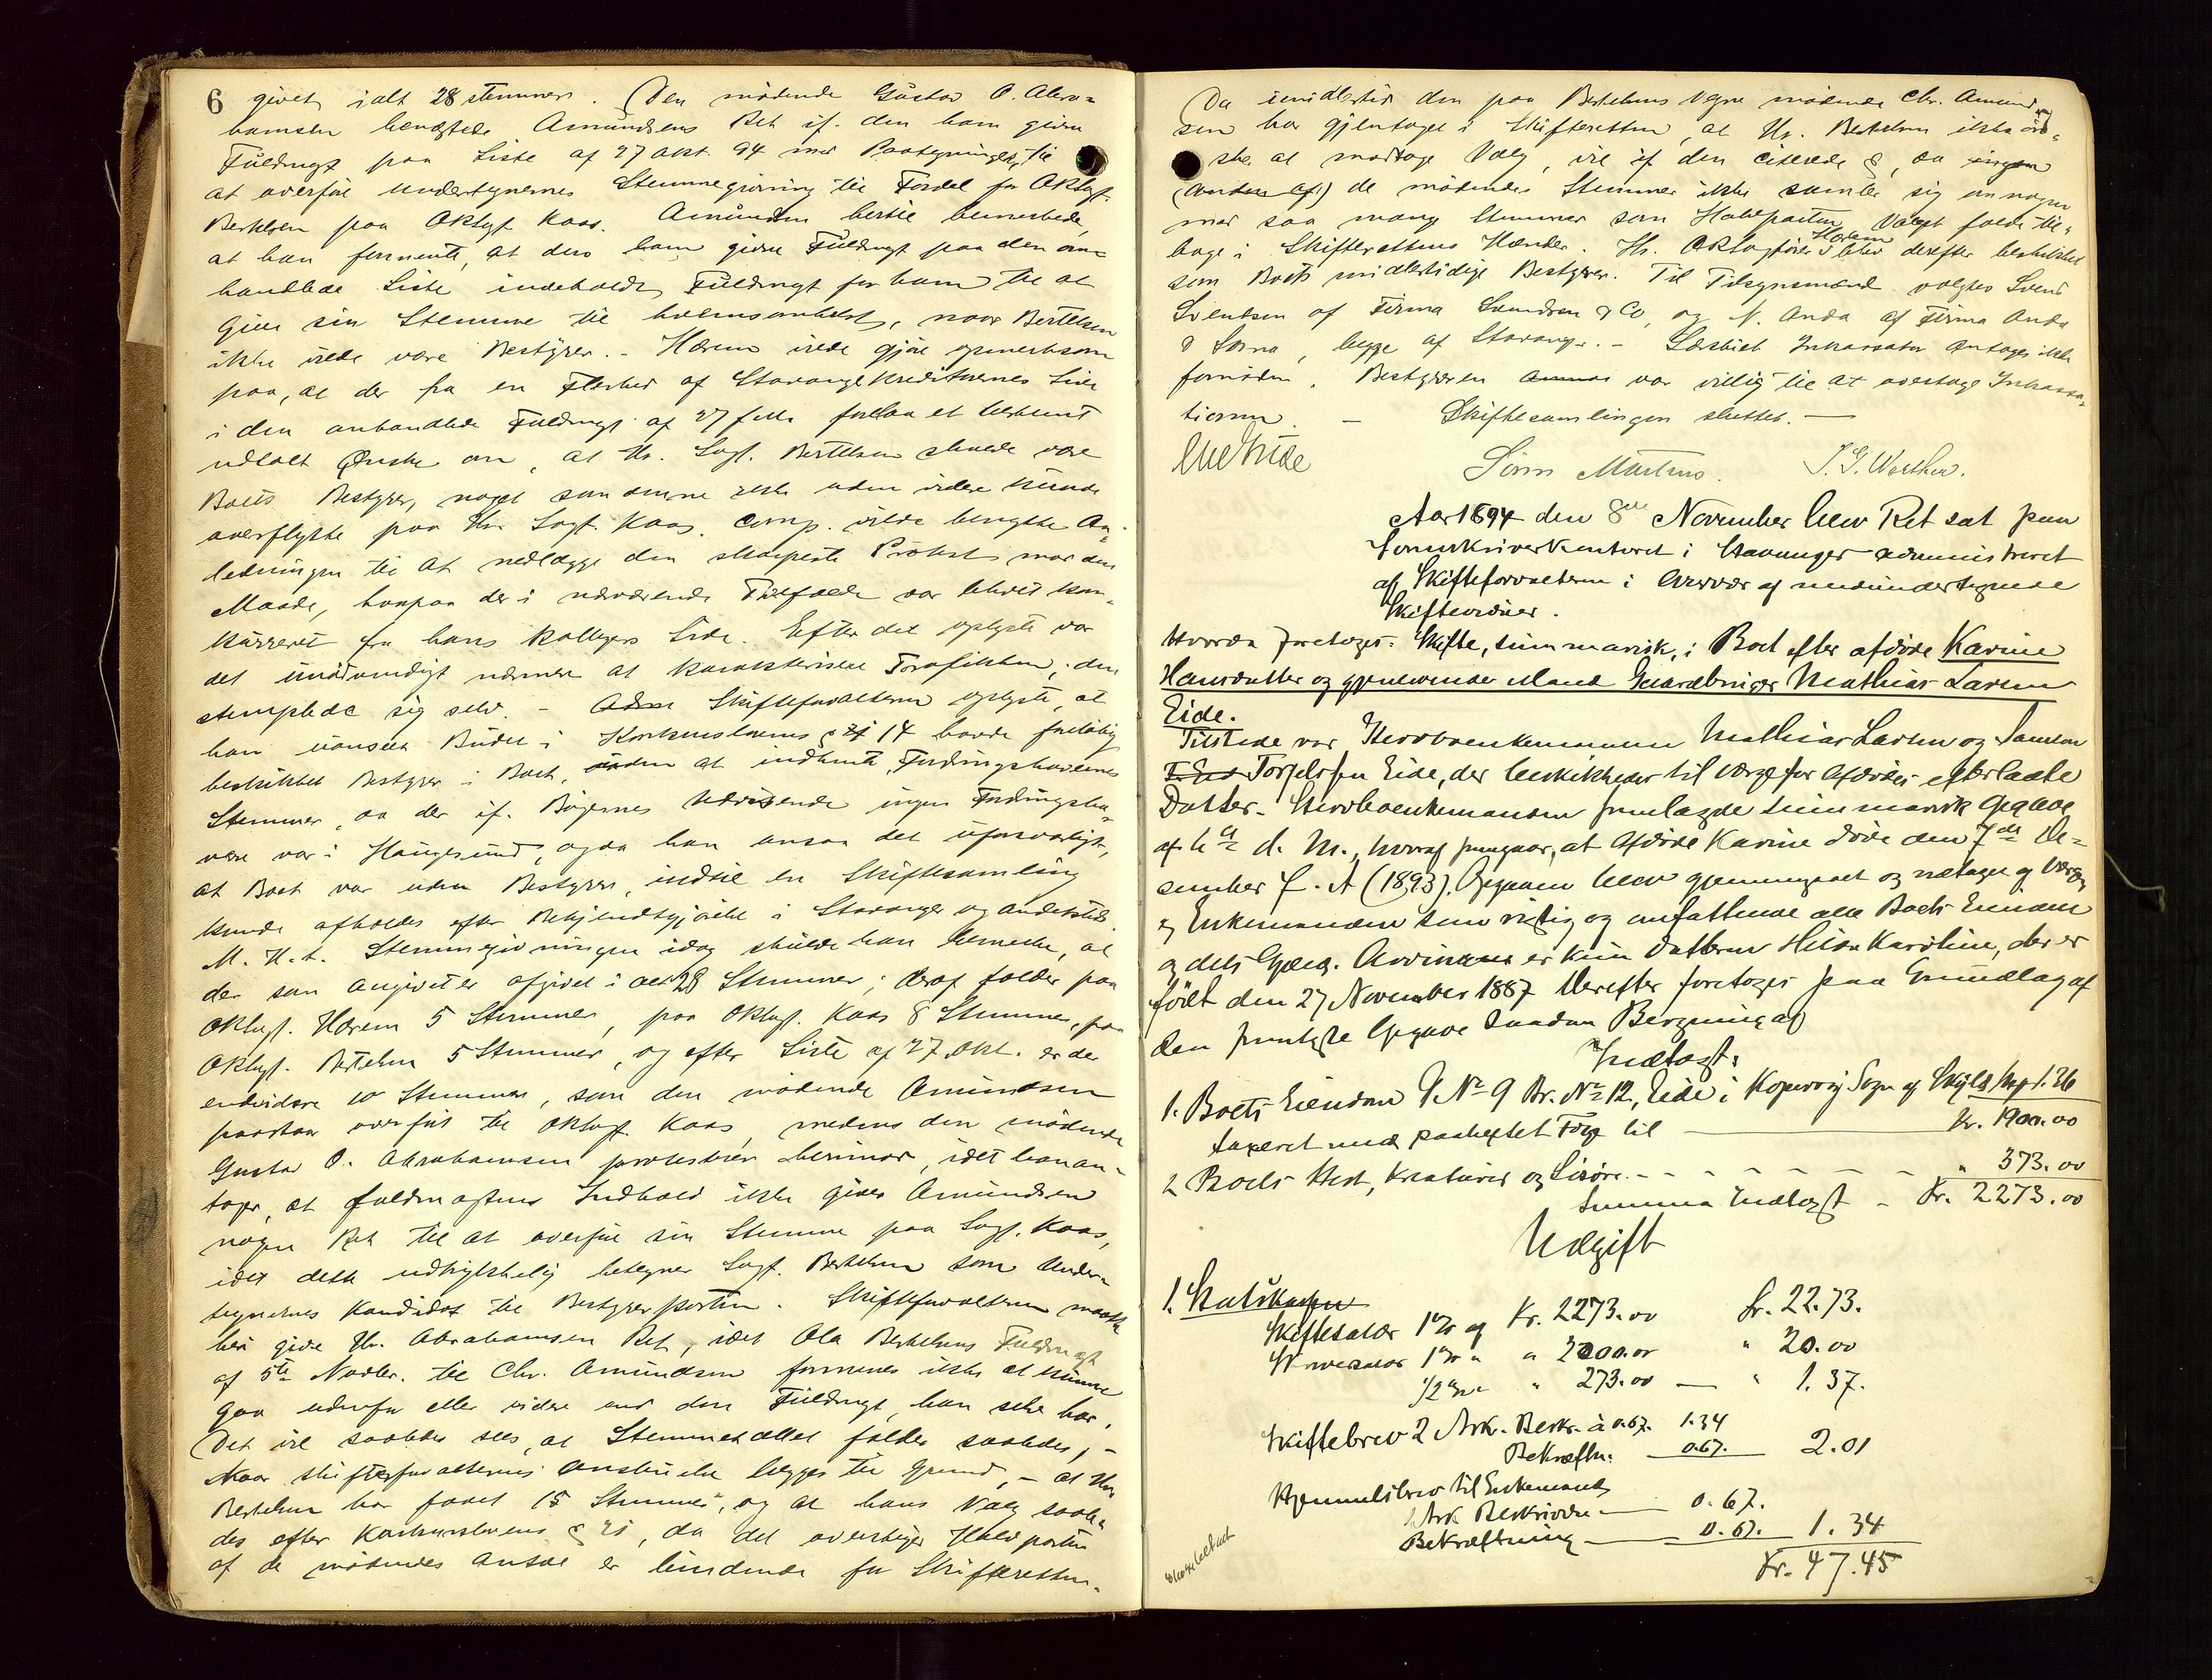 6 givet, ialt 28 stemmer. (Den mødende Gustav O. Abra=
hamsen benægtede Amundsens Ret if. den ham givne
Fuldmagt paa Liste af 27 Okt. 94 med Paategninger, til
at overføre Undertegnernes Stemmegivning til Fordel for ORsagf.
Bertelsen paa ORsagf. Kaas. Amundsen hertil bemerkede,
at han formente, at den ham givne Fuldmagt paa den om-
handlede Liste indeholdt Fuldmagt for ham til at
give sin Stemme til hvemsomhelst, naar Bertelsen
ikke vilde være Bestyrer. - Hærem vilde gjøre opmerksom
paa, at der fra en Flerhed af Stavanger Kreditorernes Side
i den omhandlede Fuldmagt af 27 forelaa et bestemt
udtalt Ønske om, at Hr. Sagf. Bertelsen skulde være
Boets Bestyrer, noget som denne ikke uden videre kunde
overflytte paa Hr. Sagf. Kaas. Comp. vilde benytte An-
ledningen til at nedlægge den skarpeste Protest mod den
Maade, hvorpaa der i nærværende Tilfælde var blevet kon-
kurreret fra hans Kollegers Side. Efter det oplyste var
det unødvendigt nærmere at karakterisere Trafikken; den
stemplede sig selv. - Skifteforvalteren oplyste, at
han uanseet Budet i Konkurslovens § 14 havde foreløbig
beskikket Bestyrer i Boet, uden at indhente Fordringshavernes
Stemmer, da der if. Bøgernes Udvisende ingen Fordringsha-
vere var i Haugesund, og da han ansaa det uforsvarligt,
at Boet var uden Bestyrer, indtil en Skiftesamling
kunde afholdes efter Bekjendtgjørelse i Stavanger og andetsteds.
M. H. t. Stemmegivningen idag skulde han bemerke, at
der som angivet er afgivet i alt 28 Stemmer; deraf falder paa
ORsagf. Hærem 5 Stemmer, paa ORsagf. Kaas 8 Stemmer, paa
ORsagf. Bertelsen 5 Stemmer, og efter Liste af 27 Okt. er der
endvidere 10 Stemmer, som den mødende Amundsen
paastaar overført til ORsagf. Kaas, medens den mødende
Gustav O. Abrahamsen protesterer herimod, idet han an-
tager, at Fuldmagtens Indhold ikke giver Amundsen
nogen Ret til at overføre sin Stemme paa Sagf. Kaas,
idet dette udtrykkelig betegner Sagf. Bertelsen som Under-
tegnernes Kandidat til Bestyrerposten. Skifteforvalteren maatte
her give Hr. Abrahamsen Ret, idet Ola Bertelsens Fuldmagt
af 5te Novbr. til Chr. Amundsen formenes ikke at kunne
gaa udenfor eller videre end den Fuldmagt, han selv har.
Det vil saaledes sees, at Stemmetallet falder saaledes, -
naar Skifteforvalterens Anskuelse lægges til Grund, - at Hr.
Bertelsen har faaet 15 Stemmer, og at hans Valg saale-
des efter Konkurslovens § 21, da det overstiger Halvparten
af de mødendes Antal er bindende for Skifteretten.
Da imidlertid den paa Bertelsens Vegne mødende Chr. Amund
sen har gjentaget i Skifteretten, at Hr. Bertelsen ikke øn-
sker at modtage Valg, vil if. den citerede §, da ingen
(anden af) de mødendes Stemmer ikke samler sig om nogen
med saa mange Stemmer som Halvparten, Valget falde til-
bage i Skifterettens Hænder. Hr. ORsagfører Hærem blev derefter beskikket
som Boets midlertidige Bestyrer. Til Tilsynsmænd valgtes Svend
Svendsen af Firma Svendsen & Co, og N. Anda af Firma Anda
& Særna, begge af Stavanger. - Særskilt Inkassator antoges ikke
fornøden. Bestyreren var villig til at overtage Inkassa-
tionen. - Skiftesamlingen sluttet. -
Søren Martens. J. G. Wæthe.
Aar 1894 den 8de November blev Ret sat paa
Sorenskriverkontoret i Stavanger administreret
af Skifteforvalteren i Overvær af medundertegnede
Skiftevidner.
Hvorda foretoges: Skifte, summarisk, i Boet efter afdøde Karine
Hansdatter og gjenlevende Mand Gaardbruger Mathias Larsen
Eide.
Tilstede var Stervboenkemanden Mathias Larsen og Samson
T. Eid Torjelssen Eide, der beskikkedes til Værge for Afdødes efterladte
Datter. Stervboenkemanden fremlagde summarisk Opgave
af 6te d. M., hvoraf fremgaar, at Afdøde Karine døde den 7de De-
cember f. A (1893). Opgaven blev gjennemgaaet og vedtaget af Værgen
og Enkemanden som rigtig og omfattende alle Boets Eiendele
og dets Gjæld. Arving er kun Datteren Hilda Karoline, der er
født den 27 November 1887. Derefter foretoges paa Grundlag af
den fremlagte Opgave saadan Beregning af
Indtægt:
1. Boets Eiendom G. No 9 Br. No 12, Eide i Kopervig Sogn af Skyld Mrp 1.36
taxeret med paaheftet Torg til — Kr. 1900.00
2 Boets Hest, Kreaturer og Løsøre - - - - - - " 373.00
Summa Indtægt - Kr. 2273.00
Udgift
1. Statskassen
Skiftesalær 1% af Kr. 2273.00 Kr. 22.73.
Skriversalær 1% " " 2000.00 " 20.00
1/2% " " 273.00 — " 1.37.
Skiftebrev 2 Ark. Beskr. à 0.67. 1.34
Bekræftn: 0.67. — 2.01
Hjemmelsbrev til Enkemand
1 Ark Beskrivelse — 0.67.
Bekræftning — 0.67. — 1.34
Kr. 47.45